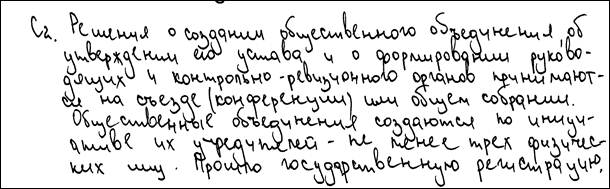 С2. Решения о создании общественного объединения, об
утверждении его устава и о формировании руково-
дящих и контрольно-ревизионного органов принимают-
ся на съезде (конференции) или общем собрании.
Общественные объединения создаются по иници-
ативе их учредителей - не менее трех физичес-
ких лиц. Прошло государственную регистрацию.